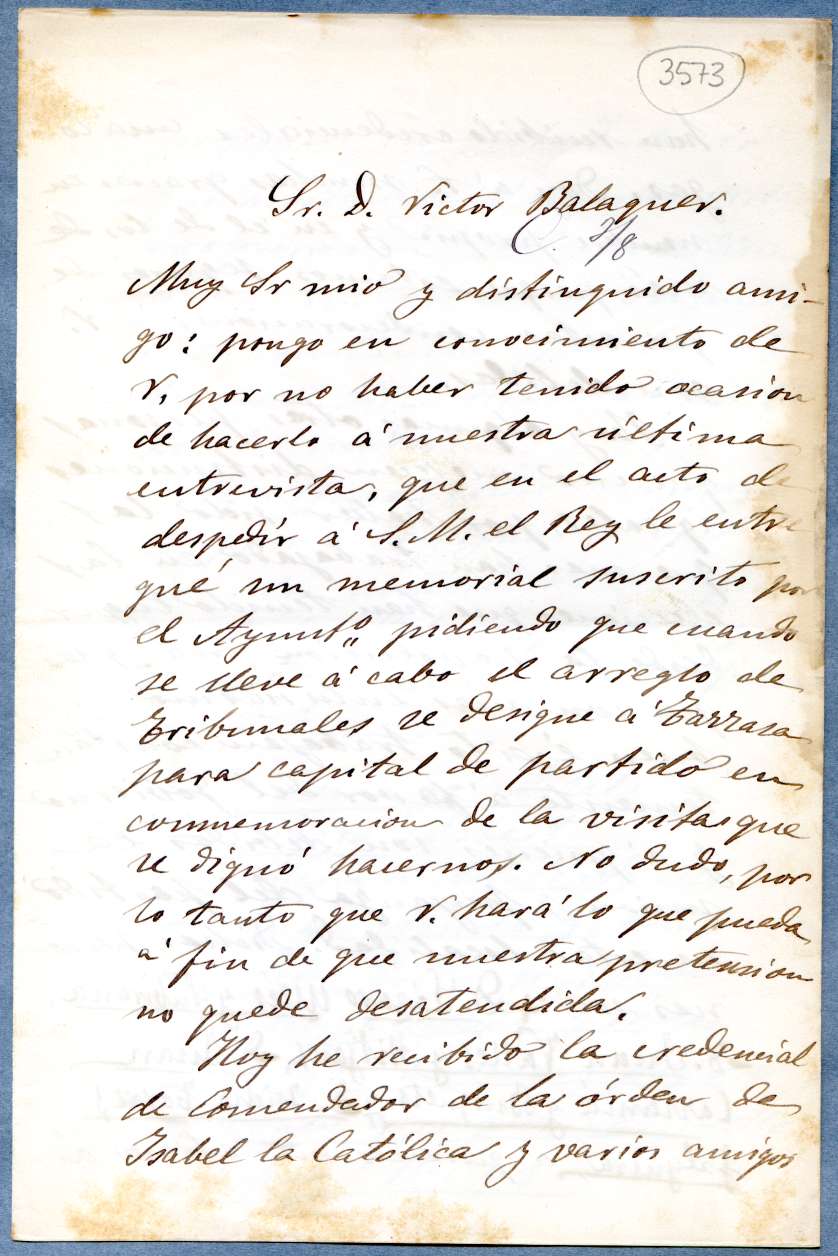 3573
Sr. D. Victor Balaguer.
C. 2/8
Muy Sr mio y distinguido ami-
go: pongo en conocimiento de
V, por no haber tenido ocasion
de hacerlo á nuestra última
entrevista, que en el acto de
despedir á S. M. el Rey le entre
gué un memorial suscrito por
el Ayuntº pidiendo que cuando
se lleve á cabo el arreglo de
Tribunales se designe á Tarrasa
para capital de partido en
conmemoracion de la visita que
se dignó hacernos. No dudo, por
lo tanto que V. hará lo que pueda
á fin de que nuestra pretension
no quede desatendida.
Hoy he recibido la credencial
de Comendador de la órden de
Isabel la Católica y varios amigos